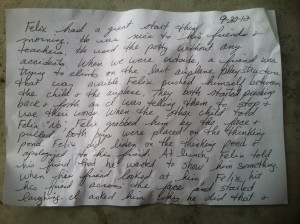 9-20-13
Felix had a great start this
morning. He was nice to his friends &
teachers. He used the potty without any
accidents. When we were outside, a friend was
trying to climb on the last airplane play structure
that was available. Felix pushed himself between
the child & the airplane. They both started pushing
back & forth as I was telling them to stop &
use their words. When the other child told
Felix "no", Felix grabbed him by the face &
pulled. Both boys were placed on the thinking
pond. Felix did listen on the thinking pond &
apologized to his friend. At lunch, Felix told
his friend that he wanted to show him something.
When her friend looked at him, Felix hit
his friend across the face and started
laughing. I asked him why he did that &